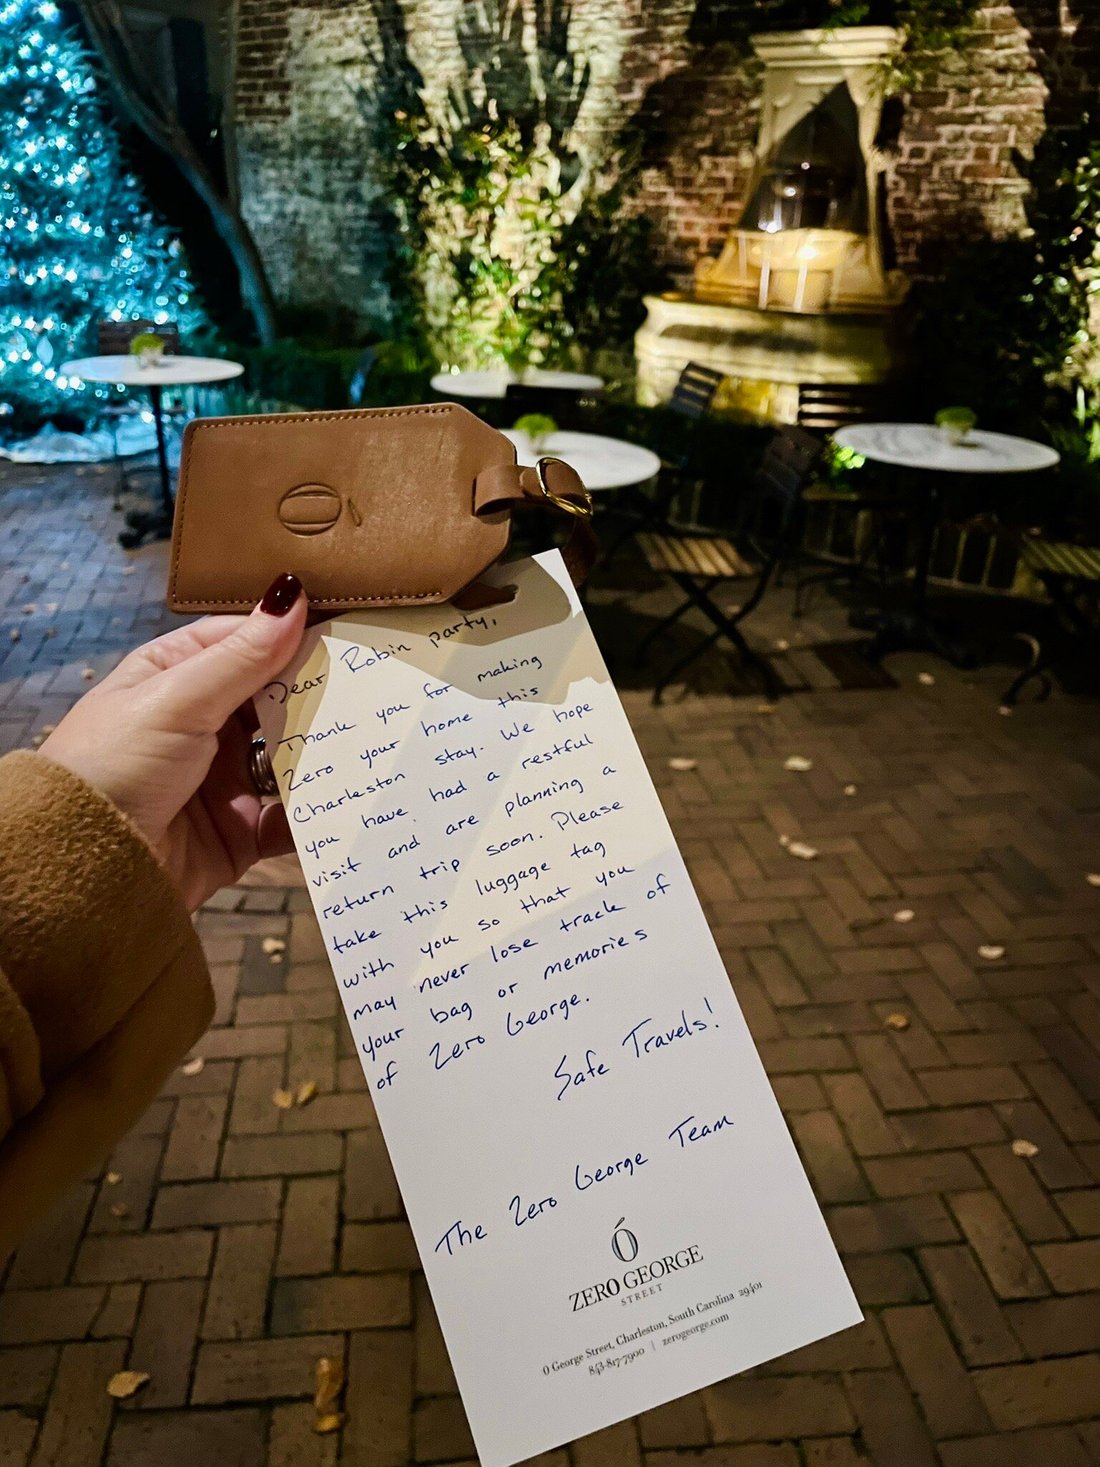 Ó
Dear Robin party,
Thank you for making
Zero your home this
Charleston stay. We hope
you have had a restful
visit and are planning a
return trip soon. Please
take this luggage tag
with you so that you
may never lose track of
your bag or memories
of Zero George.
Safe Travels!
The Zero George Team
Ó
ZERO GEORGE
STREET
0 George Street, Charleston, South Carolina 29401
843-817-7900 | zerogeorge.com